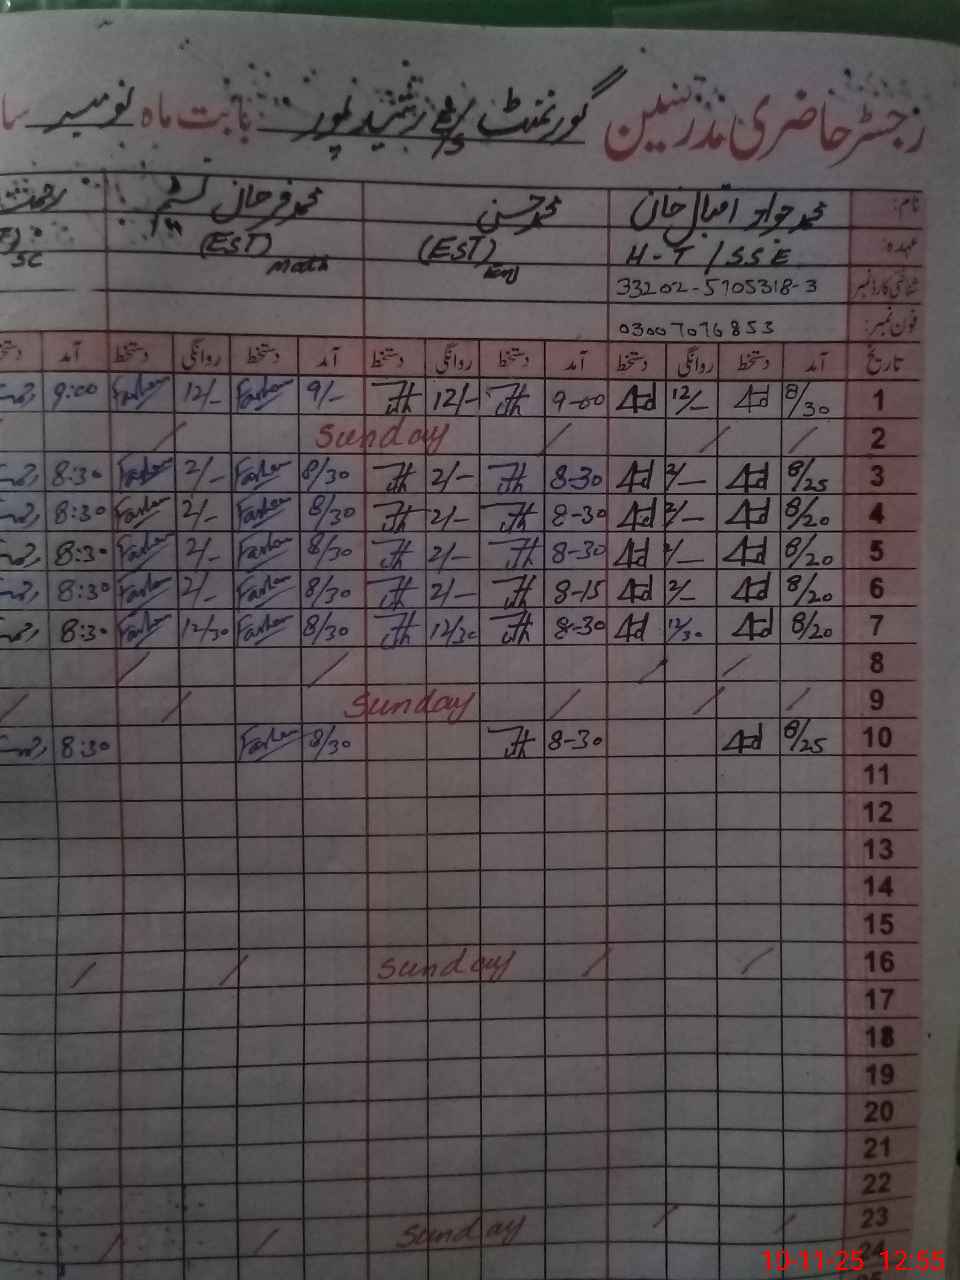 رجسٹر حاضری مدرسین گورنمنٹ رشید پور بابت ماہ نومبر
نام: محمد جواد اقبال خان محمد حسن محمد فرحان نسیم
عہدہ: H-T / SSE (EST) Eng (EST) Math SC
شناختی کارڈ نمبر 33202-5905318-3
فون نمبر: 03007076853
تاریخ آمد دستخط روانگی دستخط آمد دستخط روانگی دستخط آمد دستخط روانگی دستخط آمد
1 8/30 Ad 12/- Ad 9-00 Jth 12/- Jth 9/- Farhan 12/- Farhan 9:00
2 / / / Sunday /
3 8/25 Ad 2/- Ad 8-30 Jth 2/- Jth 8/30 Farhan 2/- Farhan 8:30
4 8/20 Ad 2/- Ad 8-30 Jth 2/- Jth 8/30 Farhan 2/- Farhan 8:30
5 8/20 Ad 2/- Ad 8-30 Jth 2/- Jth 8/30 Farhan 2/- Farhan 8:30
6 8/20 Ad 2/- Ad 8-15 Jth 2/- Jth 8/30 Farhan 2/- Farhan 8:30
7 8/20 Ad 12/30 Ad 8-30 Jth 12/30 Jth 8/30 Farhan 12/30 Farhan 8:30
8 / / / /
9 / / / Sunday / /
10 8/25 Ad 8-30 Jth 8/30 Farhan 8:30
11
12
13
14
15
16 / / Sunday / /
17
18
19
20
21
22
23 / / Sunday / /
24
10-11-25 12:55